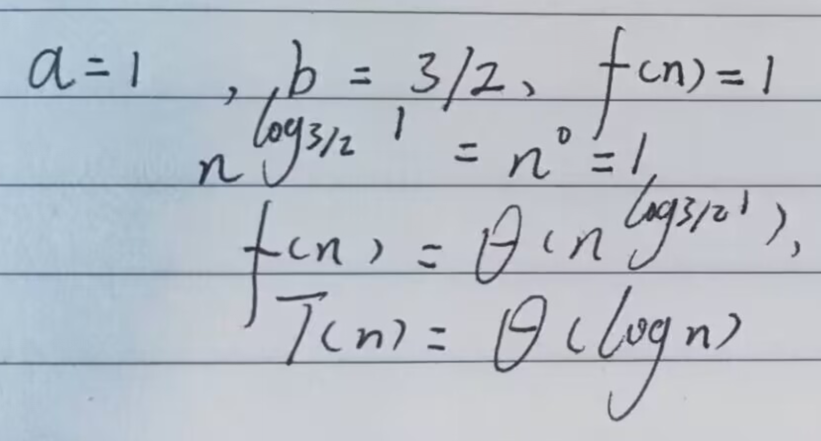 a = 1 , b = 3/2、 f(n) = 1
n^{log_{3/2} 1} = n^0 = 1
f(n) = θ(n^{log_{3/2} 1}),
T(n) = θ(log n)